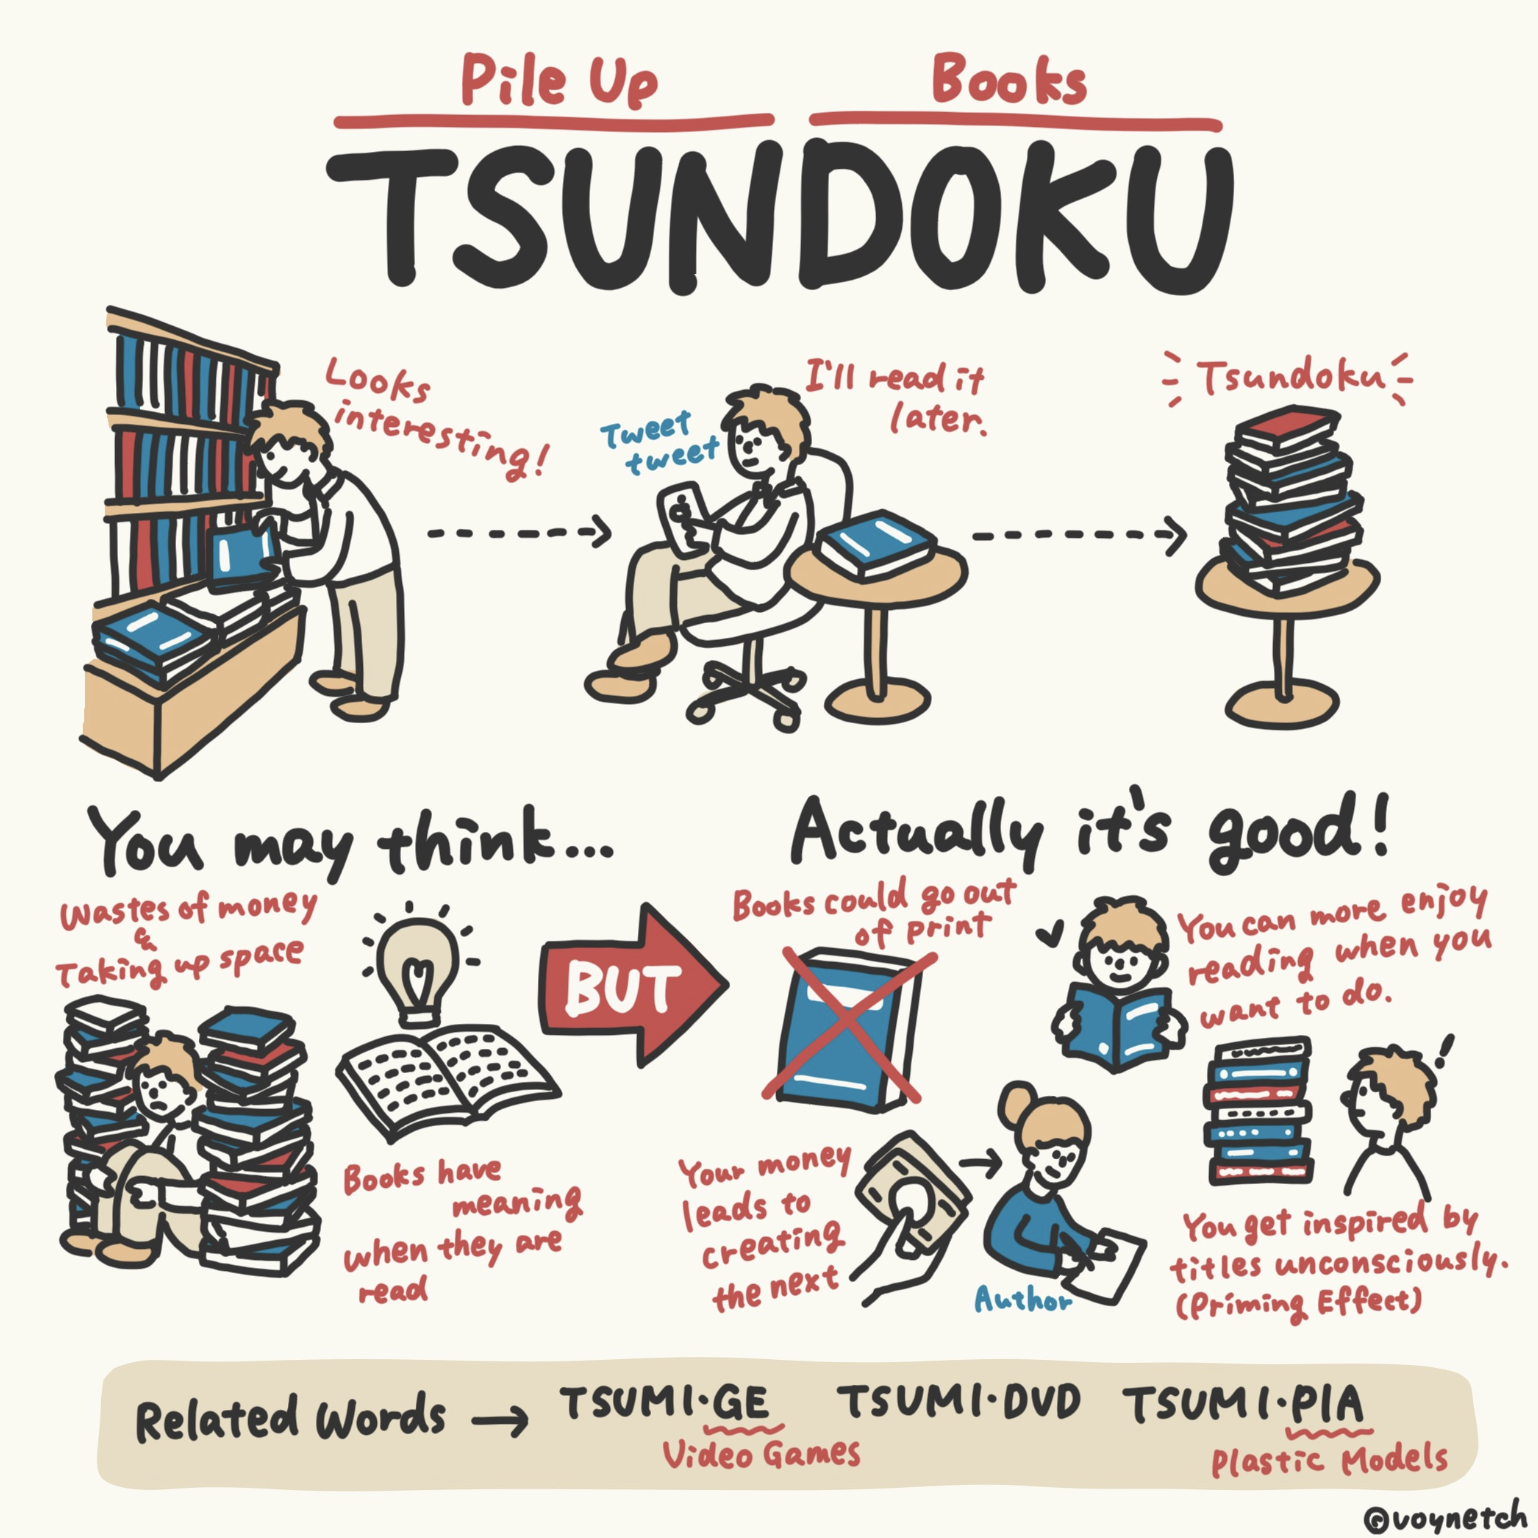 Pile Up Books
TSUNDOKU
Looks
interesting!
Tweet
tweet
I'll read it
later.
Tsundoku
You may think...
Wastes of money
&
Taking up space
Books have
meaning
when they are
read
BUT
Actually it's good!
Books could go out
of print
You can more enjoy
reading when you
want to do.
Your money
leads to
creating
the next
Author
You get inspired by
titles unconsciously.
(Priming Effect)
Related Words → TSUMI·GE TSUMI·DVD TSUMI·PIA
Video Games Plastic Models
@voynetch